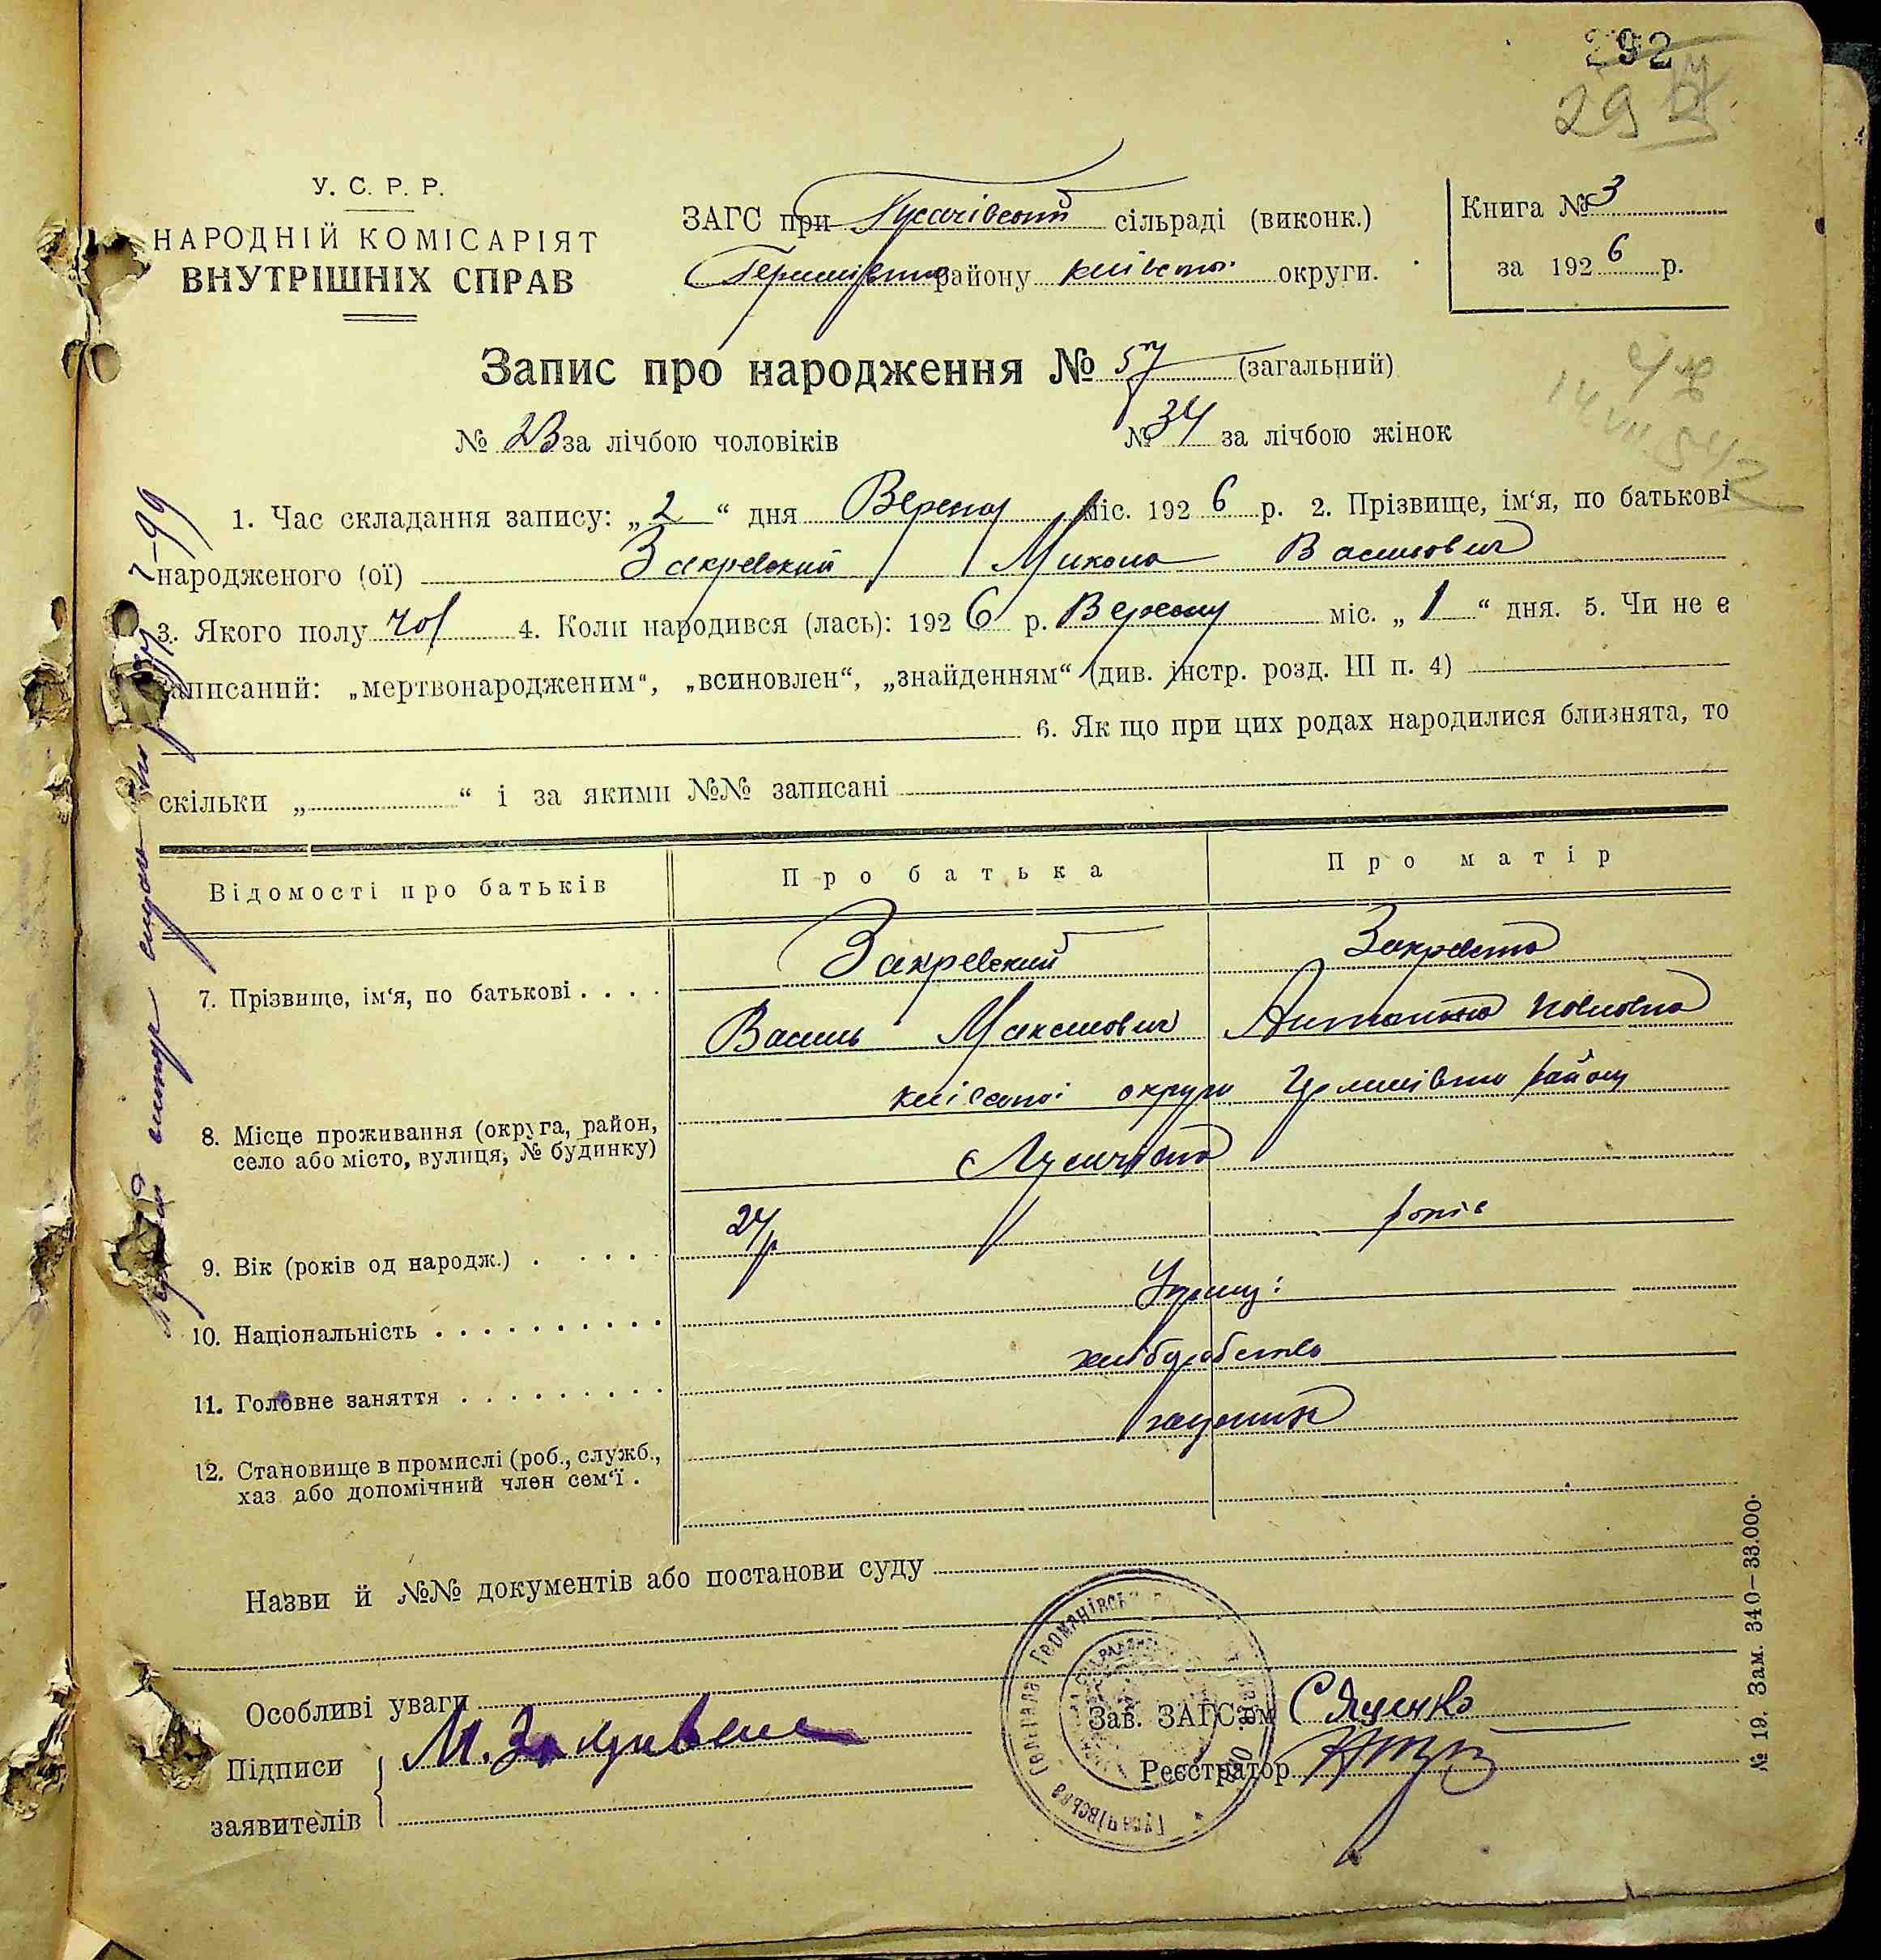 292
29
У. С. Р. Р.
НАРОДНІЙ КОМІСАРІЯТ
ВНУТРІШНІХ СПРАВ
ЗАГС при Гусачівський сільраді (виконк.)
району київської округи.
Книга № 3
за 1926 р.
Запис про народження № 57 (загальний)
№ 23 за лічбою чоловіків № 34 за лічбою жінок
1. Час складання запису: „2“ дня Вересня міс. 1926 р. 2. Прізвище, ім‘я, по батькові
народженого (ої) Закревский Микола Васильович
3. Якого полу чол 4. Коли народився (лась): 1926 р. Вересню міс. „1“ дня. 5. Чи не є
записаний: „мертвонародженим“, „всиновлен“, „знайденням“ (див. інстр. розд. III п. 4)
6. Як що при цих родах народилися близнята, то
скільки „ “ і за якими №№ записані
Відомості про батьків Про батька Про матір
7. Прізвище, ім‘я, по батькові . . . . Закревский Закревска
Василь Максимович Антоніна Павловна
київської округи району
8. Місце проживання (округа, район,
село або місто, вулиця, № будинку)
с Гусачівка
9. Вік (років од народж.) . . . . . 24р років
10. Національність . . . . . . . . . . Україн:
11. Головне заняття . . . . . . . . . хліборобство
12. Становище в промислі (роб., служб.,
хаз або допомічний член сем‘ї .
Назви й №№ документів або постанови суду
Особливі уваги
Зав. ЗАГС‘ом С Яценко
Підписи
заявителів
М.
Реєстратор
№ 19. Зам. 340—33.000.